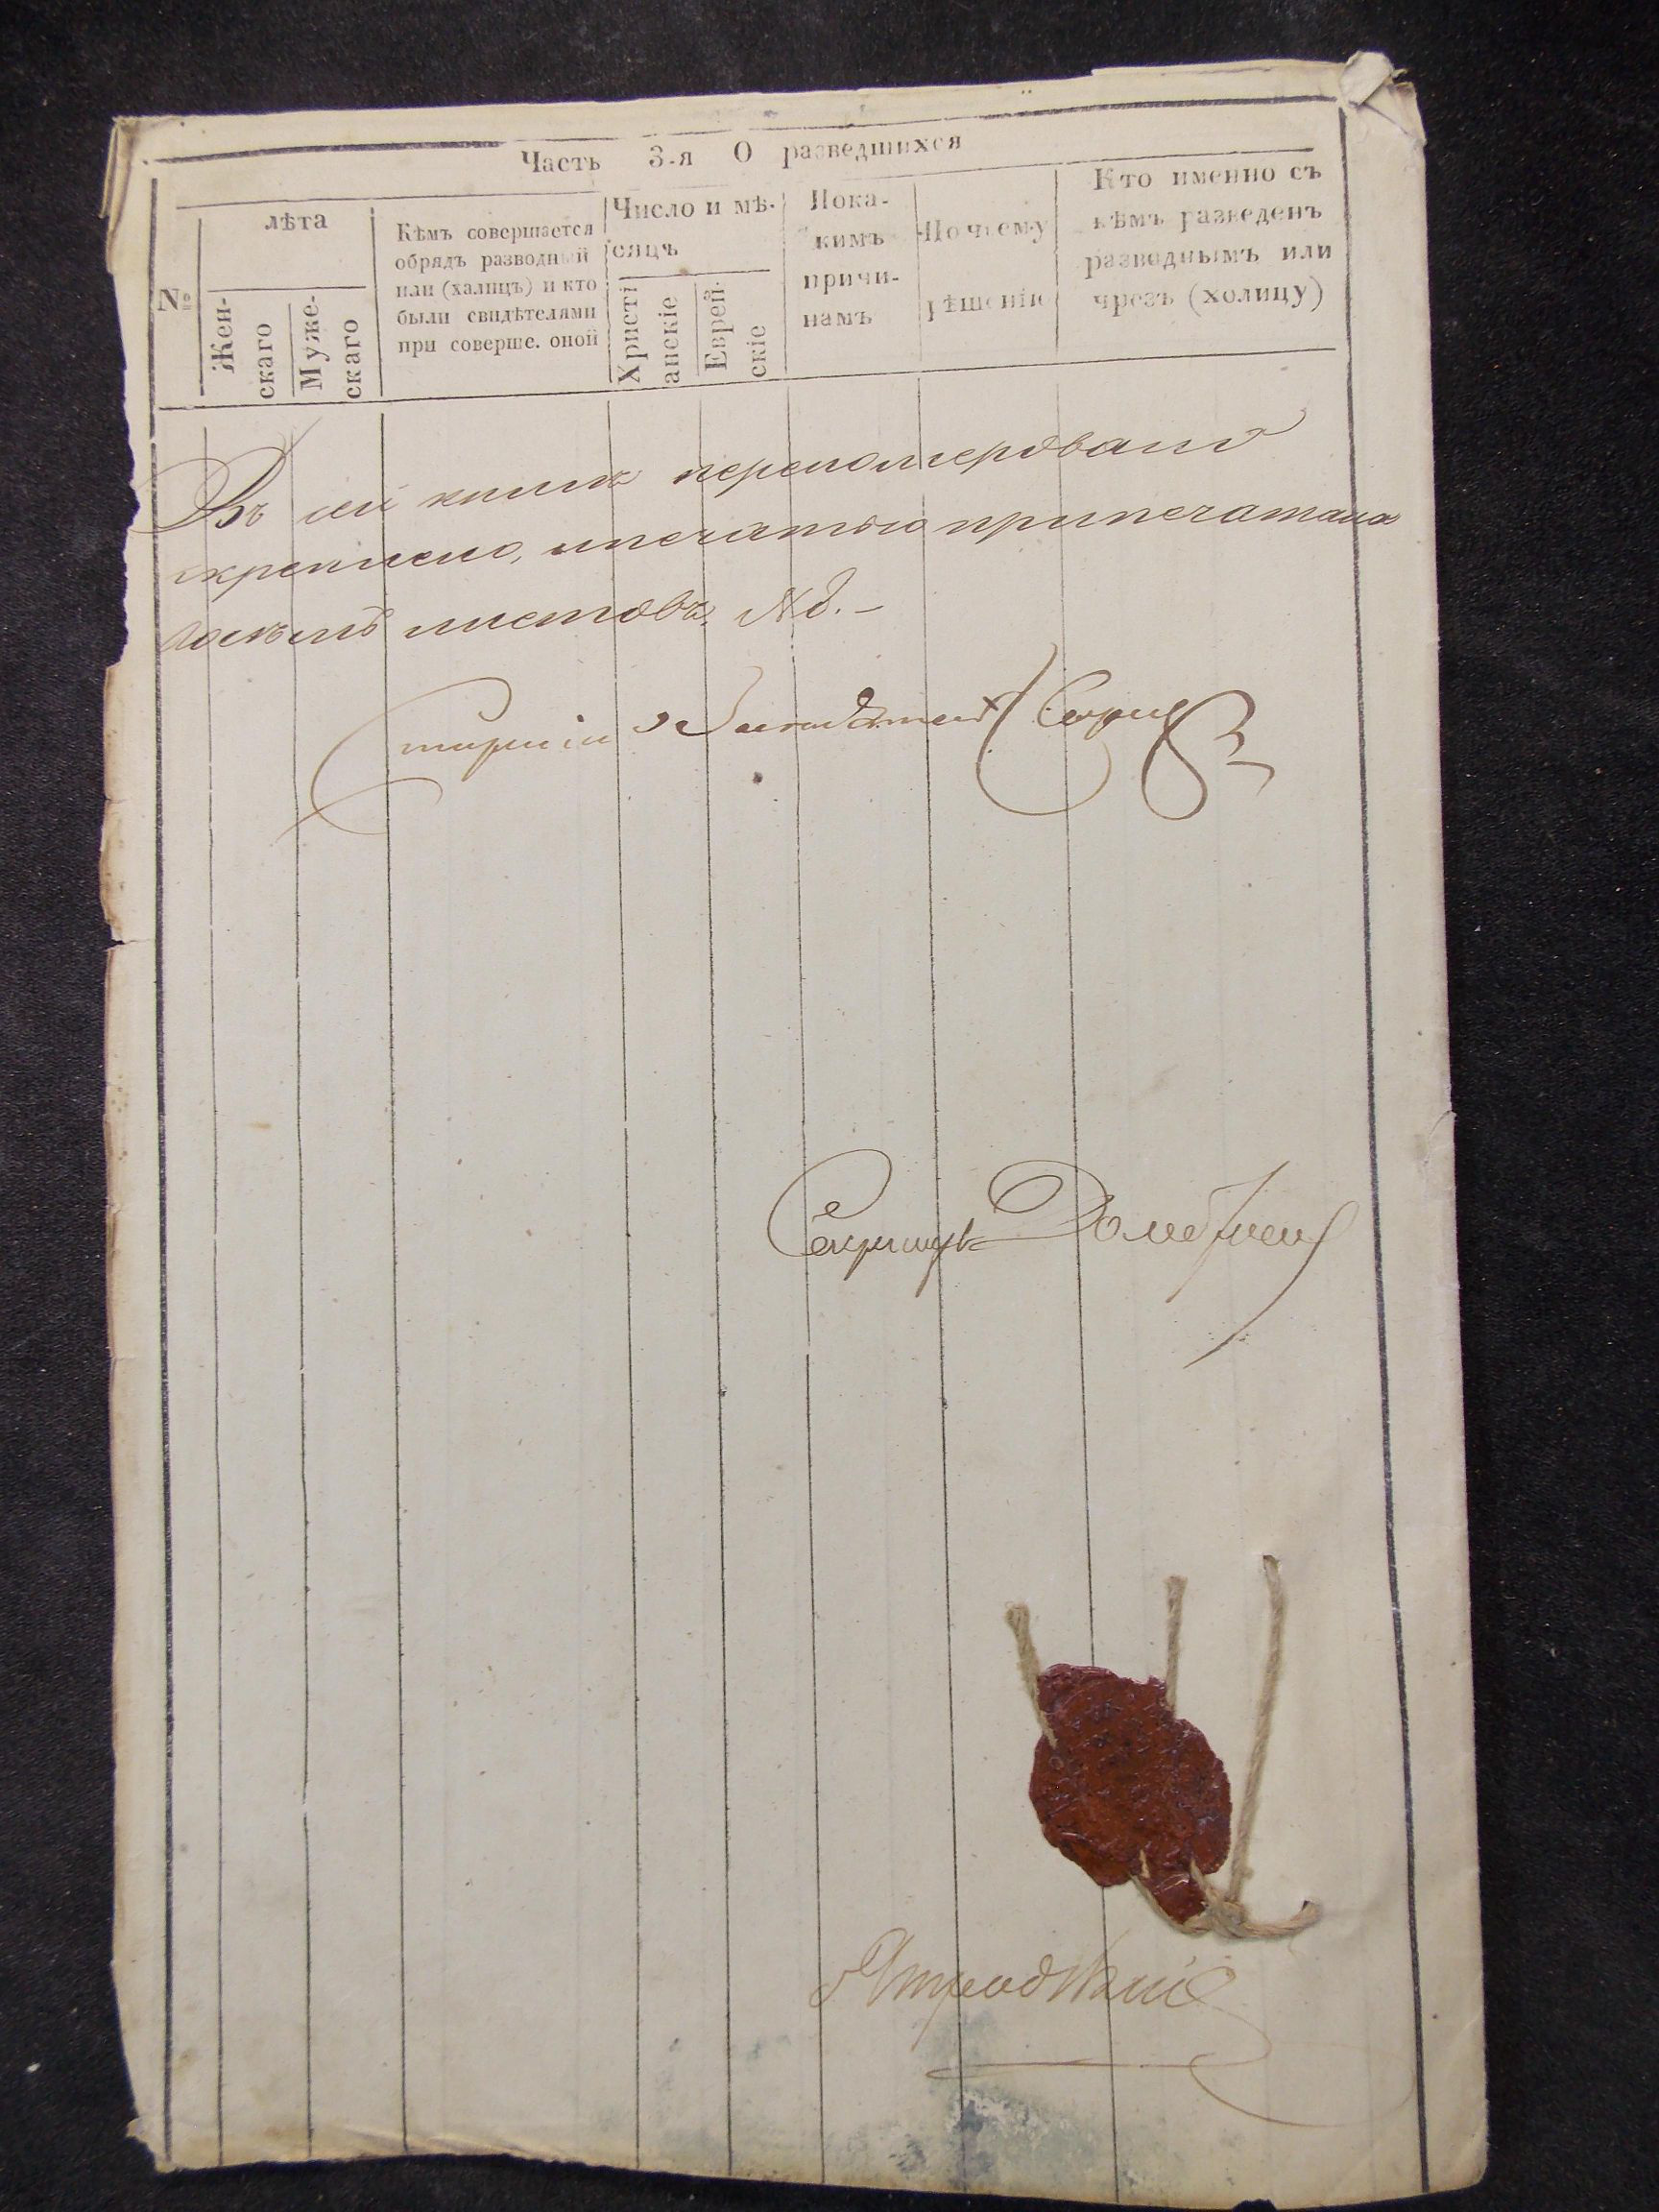 Часть 3-я О разведшихся
№
лѣта
Жен-
скаго
Муже-
скаго
Кѣмъ совершается
обрядъ разводный
или (халицъ) и кто
были свидѣтелями
при соверше. оной
Число и мѣ-
сяцъ
Христі
анскіе
Еврей-
скіе
Пока-
кимъ
причи-
намъ
По чьему
рѣшенію
Кто именно съ
кѣмъ разведенъ
разводнымъ или
чрезъ (холицу)
Въ сей книгѣ переномеровано
скреплено, и печатью припечатана
листовъ,
Секретарь